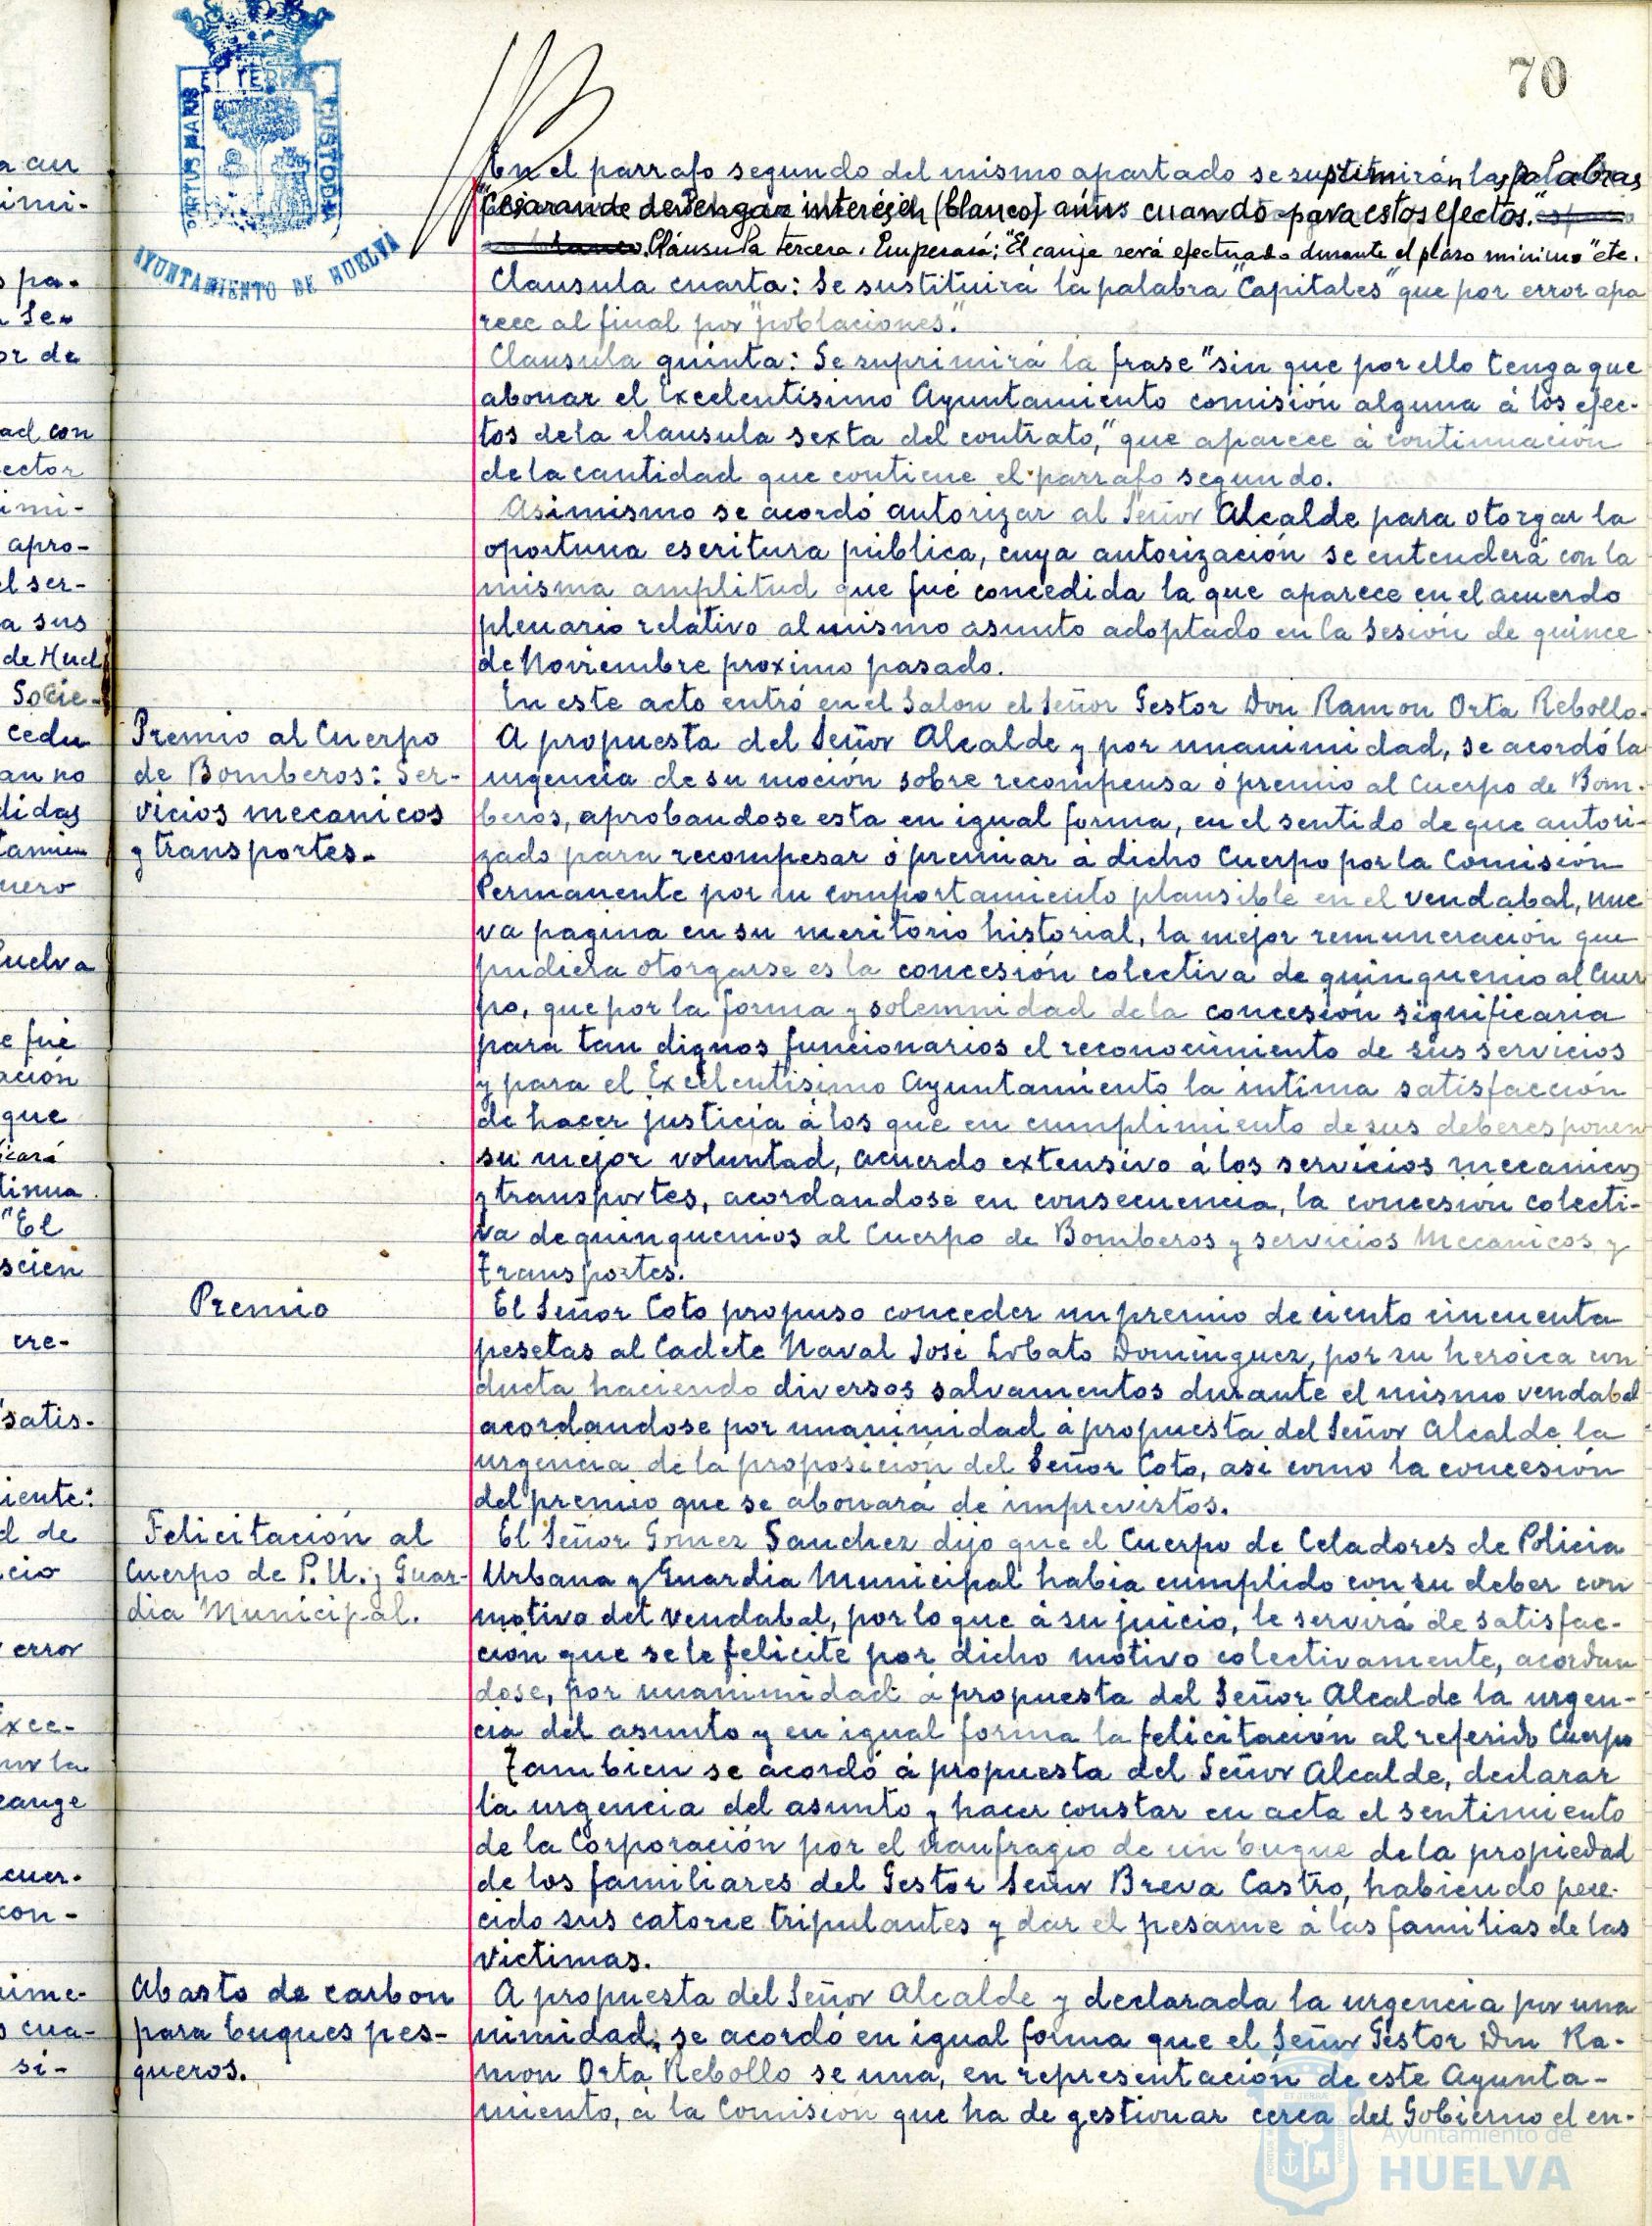 70
PORTUS MARIS ET TERRAE CUSTODIA
AYUNTAMIENTO DE HUELVA
En el parrafo segundo del mismo apartado se suprimirán las palabras
interés en (blanco) aúns cuando para estos efectos."
Cláusula tercera. Empezará; "El canje será efectuado durante el plazo minimo" etc.
Clausula cuarta: Se sustituirá la palabra "Capitales" que por error apa
rece al final por "poblaciones."
Clausula quinta: Se suprimirá la frase "sin que por ello tenga que
abonar el Excelentísimo Ayuntamiento comisión alguna á los efec-
tos de la clausula sexta del contrato," que aparece á continuación
de la cantidad que contiene el parrafo segundo.
Asimismo se acordó autorizar al Señor Alcalde para otorgar la
oportuna escritura pública, cuya autorización se entenderá con la
misma amplitud que fué concedida la que aparece en el acuerdo
plenario relativo al mismo asunto adoptado en la Sesión de quince
de Noviembre proximo pasado.
En este acto entró en el Salon el Señor Gestor Don Ramon Orta Rebollo.
Premio al Cuerpo
de Bomberos: Ser-
vicios mecanicos
y transportes.
A propuesta del Señor Alcalde y por unanimidad, se acordó la
urgencia de su moción sobre recompensa ó premio al Cuerpo de Bom-
beros, aprobandose esta en igual forma, en el sentido de que autori-
zado para recompesar ó premiar á dicho Cuerpo por la Comisión
Permanente por su comportamiento plausible en el vendabal, nue
va pagina en su meritorio historial, la mejor remuneración que
pudiera otorgarse es la concesión colectiva de quinquenio al Cuer
po, que por la forma y solemnidad de la concesión significaria
para tan dignos funcionarios el reconocimiento de sus servicios
y para el Excelentísimo Ayuntamiento la intima satisfacción
de hacer justicia á los que en cumplimiento de sus deberes ponen
su mejor voluntad, acuerdo extensivo á los servicios mecanicos
y transportes, acordandose en consecuencia, la concesión colecti-
va de quinquenios al Cuerpo de Bomberos y servicios Mecanicos y
Transportes.
Premio
El Señor Coto propuso conceder un premio de ciento cincuenta
pesetas al Cadete Naval José Lobato Dominguez, por su heroica con
ducta haciendo diversos salvamentos durante el mismo vendabal
acordandose por unanimidad á propuesta del Señor Alcalde la
urgencia de la proposición del Señor Coto, asi como la concesión
del premio que se abonará de imprevistos.
Felicitación al
Cuerpo de P.U. y Guar-
dia Municipal.
El Señor Gomez Sanchez dijo que el Cuerpo de Celadores de Policia
Urbana y Guardia Municipal habia cumplido con su deber con
motivo del vendabal, por lo que á su juicio, le servirá de satisfac-
ción que se le felicite por dicho motivo colectivamente, acordan
dose, por unanimidad á propuesta del Señor Alcalde la urgen-
cia del asunto y en igual forma la felicitación al referido Cuerpo
Tambien se acordó á propuesta del Señor Alcalde, declarar
la urgencia del asunto y hacer constar en acta el sentimiento
de la Corporación por el naufragio de un buque de la propiedad
de los familiares del Gestor Señor Breva Castro, habiendo pere-
cido sus catorce tripulantes y dar el pesame á las familias de las
victimas.
Abasto de carbon
para buques pes-
queros.
A propuesta del Señor Alcalde y declarada la urgencia por una
nimidad, se acordó en igual forma que el Señor Gestor Don Ra-
mon Orta Rebollo se una, en representación de este Ayunta-
miento, á la Comisión que ha de gestionar cerca del Gobierno el en-
Ayuntamiento de
HUELVA